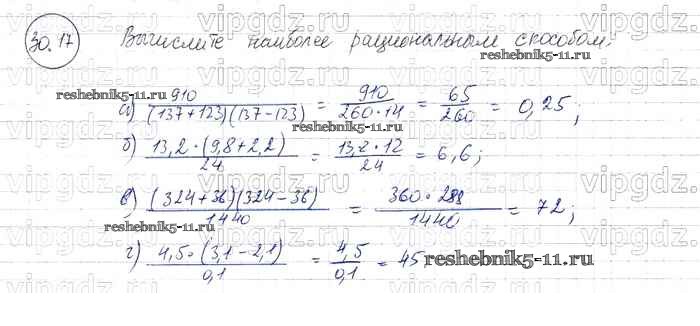 30.17 Вычислите наиболее рациональным способом:
а) 910 / (137+123)(137-123) = 910 / 260·14 = 65 / 260 = 0,25;
б) 13,2·(9,8+2,2) / 24 = 13,2·12 / 24 = 6,6;
в) (324+36)(324-36) / 1440 = 360·288 / 1440 = 72;
г) 4,5·(3,1-2,1) / 0,1 = 4,5 / 0,1 = 45
reshebnik5-11.ru
reshebnik5-11.ru
reshebnik5-11.ru
reshebnik5-11.ru
reshebnik5-11.ru
vipgdz.ru